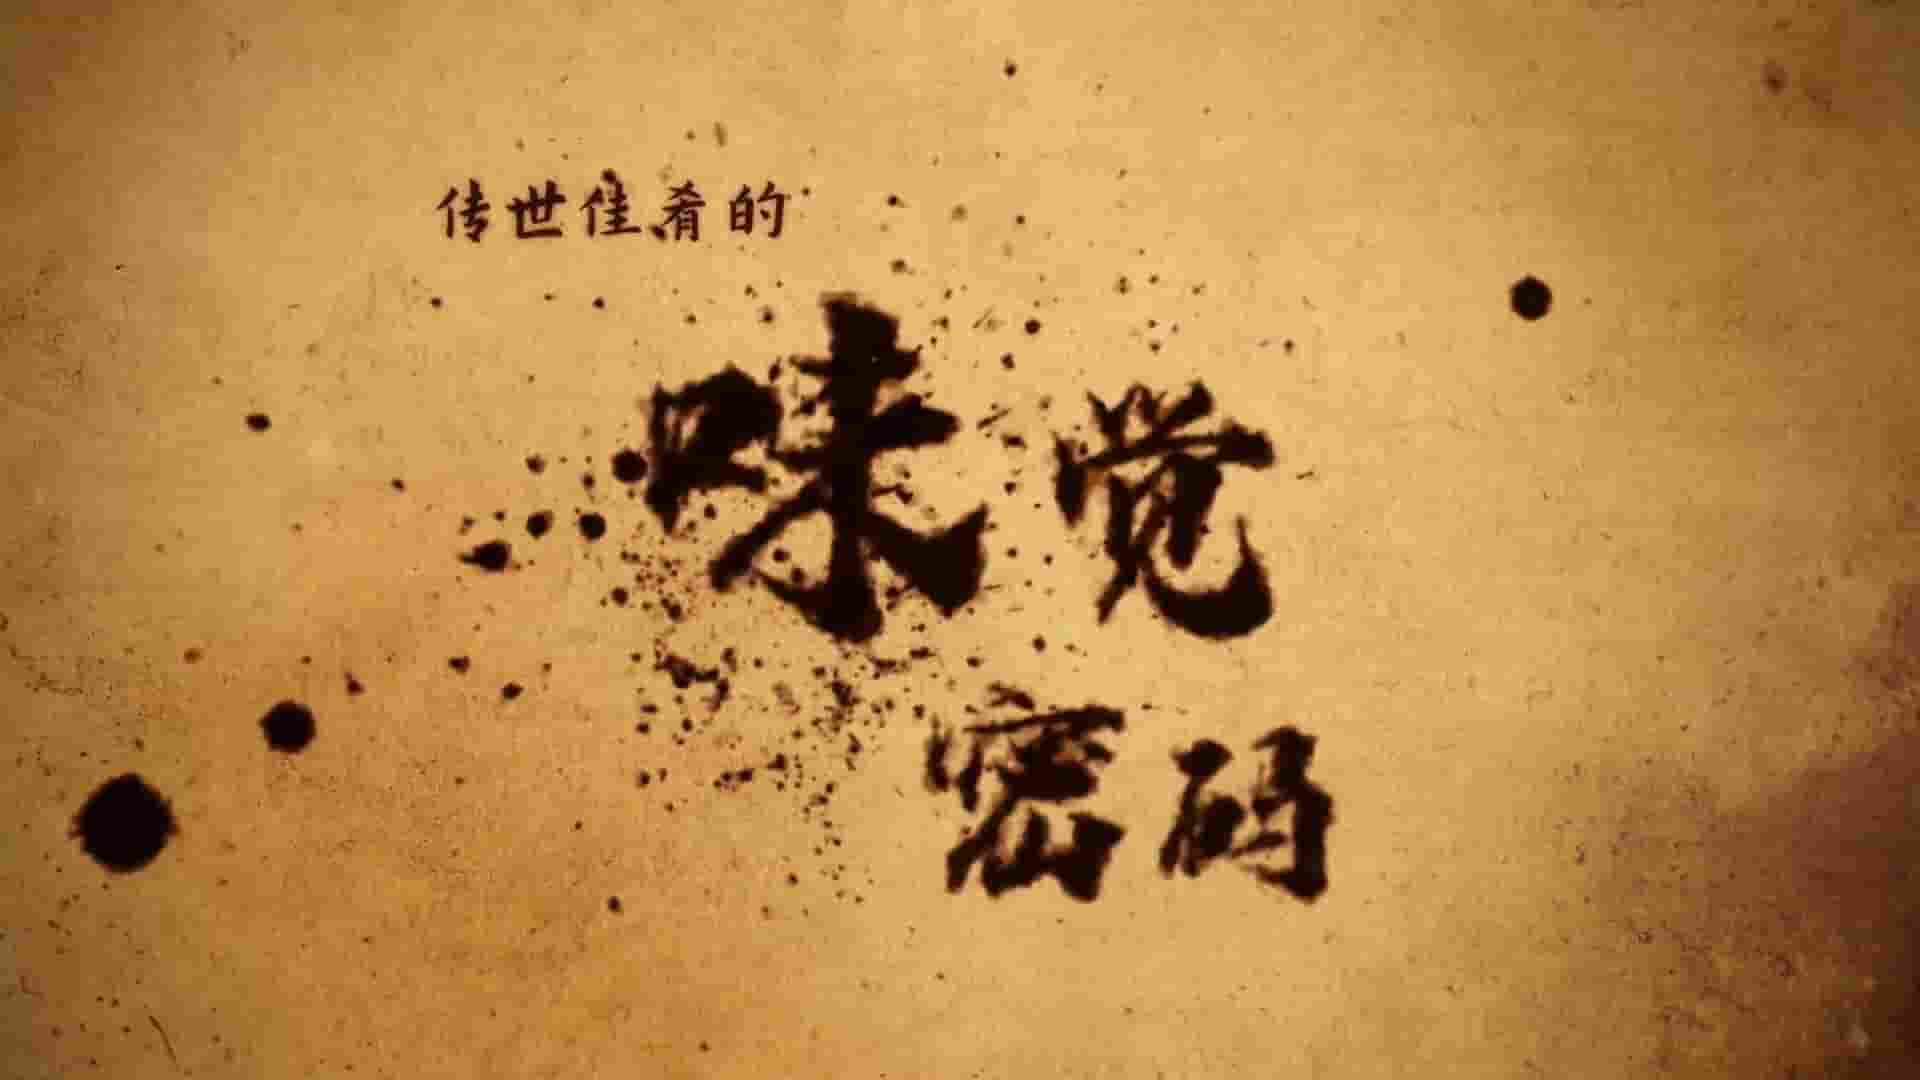 传世佳肴的
味觉
密码